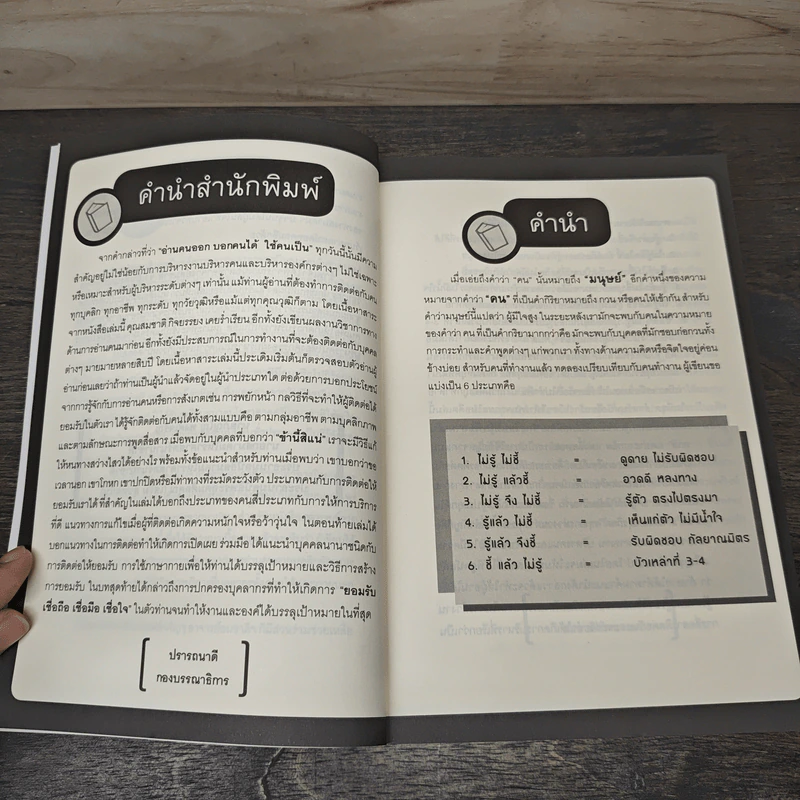 คำนำสำนักพิมพ์
จากคำกล่าวที่ว่า "อ่านคนออก บอกคนได้ ใช้คนเป็น" ทุกวันนี้นั้นมีความ
สำคัญอยู่ไม่ใช่น้อยกับการบริหารงานบริหารคนและบริหารองค์กรต่างๆ ไม่ใช่เฉพาะ
หรือเหมาะสำหรับผู้บริหารระดับต่างๆ เท่านั้น แม้ท่านผู้อ่านที่ต้องทำการติดต่อกับคน
ทุกบุคลิก ทุกอาชีพ ทุกระดับ ทุกวัยวุฒิหรือแม้แต่ทุกคุณวุฒิก็ตาม โดยเนื้อหาสาระ
จากหนังสือเล่มนี้ คุณสมชาติ กิจยรรยง เคยร่ำเรียน อีกทั้งยังเขียนผลงานวิชาการทาง
ด้านการอ่านคนมาก่อน อีกทั้งยังมีประสบการณ์ในการทำงานที่จะต้องติดต่อกับบุคคล
ต่างๆ มายมายหลายสิบปี โดยเนื้อหาสาระเล่มนี้ประเดิมเริ่มต้นก็ตรวจสอบตัวอ่านผู้
อ่านก่อนเลยว่าถ้าท่านเป็นผู้นำแล้วจัดอยู่ในผู้นำประเภทใด ต่อด้วยการบอกประโยชน์
จากการรู้จักกับการอ่านคนหรือการสังเกตเช่น การพยักหน้า กลวิธีที่จะทำให้ผู้ติดต่อได้
ยอมรับในตัวเรา ได้รู้จักติดต่อกับคนได้ทั้งสามแบบคือ ตามกลุ่มอาชีพ ตามบุคลิกภาพ
และตามลักษณะการพูดสื่อสาร เมื่อพบกับบุคคลที่บอกว่า "ข้านี้สิแน่" เราจะมีวิธีแก้
ให้หนทางสว่างไสวได้อย่างไร พร้อมทั้งข้อแนะนำสำหรับท่านเมื่อพบว่า เขาบอกว่าขอ
เวลานอก เขาโกหก เขาปกปิดหรือมีท่าทางที่ระมัดระวังตัว ประเภทคนกับการติดต่อให้
ยอมรับเราได้ ที่สำคัญในเล่มได้บอกถึงประเภทของคนสี่ประเภทกับการให้การบริการ
ที่ดี แนวทางการแก้ไขเมื่อผู้ที่ติดต่อเกิดความหนักใจหรือว้าวุ่นใจ ในตอนท้ายเล่มได้
บอกแนวทางในการติดต่อทำให้เกิดการเปิดเผย ร่วมมือ ได้แนะนำบุคคลนานาชนิดกับ
การติดต่อให้ยอมรับ การใช้ภาษากายเพื่อให้ท่านได้บรรลุเป้าหมายและวิธีการสร้าง
การยอมรับ ในบทสุดท้ายได้กล่าวถึงการปกครองบุคลากรที่ทำให้เกิดการ "ยอมรับ
เชื่อถือ เชื่อมือ เชื่อใจ" ในตัวท่านจนทำให้งานและองค์ได้บรรลุเป้าหมายในที่สุด
ปรารถนาดี
กองบรรณาธิการ
คำนำ
เมื่อเอ่ยถึงคำว่า "คน" นั้นหมายถึง "มนุษย์" อีกคำหนึ่งของความ
หมายจากคำว่า "คน" ที่เป็นคำกิริยาหมายถึง กวน หรือคนให้เข้ากัน สำหรับ
คำว่ามนุษย์นี้แปลว่า ผู้มีใจสูง ในระยะหลังเรามักจะพบกับคนในความหมาย
ของคำว่า คน ที่เป็นคำกิริยามากกว่าคือ มักจะพบกับบุคคลที่มักชอบก่อกวนทั้ง
การกระทำและคำพูดต่างๆ แก่พวกเรา ทั้งทางด้านความคิดหรือจิตใจอยู่ค่อน
ข้างบ่อย สำหรับคนที่ทำงานแล้ว ทดลองเปรียบเทียบกับคนทำงาน ผู้เขียนขอ
แบ่งเป็น 6 ประเภทคือ
1. ไม่รู้ ไม่ชี้ = ดูดาย ไม่รับผิดชอบ
2. ไม่รู้ แล้วชี้ = อวดดี หลงทาง
3. ไม่รู้ จึง ไม่ชี้ = รู้ตัว ตรงไปตรงมา
4. รู้แล้ว ไม่ชี้ = เห็นแก่ตัว ไม่มีน้ำใจ
5. รู้แล้ว จึงชี้ = รับผิดชอบ กัลยาณมิตร
6. ชี้ แล้ว ไม่รู้ = บัวเหล่าที่ 3-4